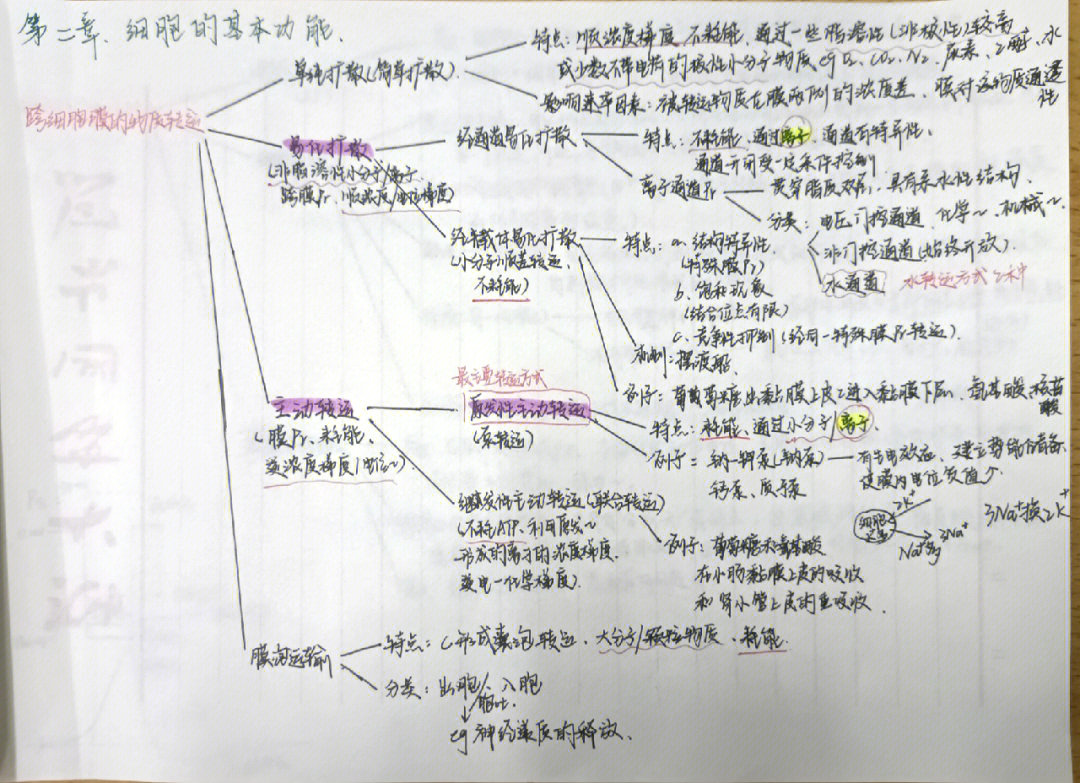 第二章. 细胞的基本功能.
跨细胞膜的物质转运
单纯扩散(简单扩散).
特点: 顺浓度梯度 不耗能. 通过一些脂溶性(非极性)较高
或少数不带电荷的极性小分子物质. eg O₂、CO₂、N₂、尿素、乙醇、水
影响速率因素: 被转运物质在膜两侧的浓度差、膜对该物质通透性
易化扩散
(非脂溶性小分子/离子.
跨膜Pr. 顺浓度/电位梯度)
经通道易化扩散
特点: 不耗能、通过离子、通道有特异性.
通道开闭受一定条件控制
离子通道Pr
贯穿脂质双层, 具有亲水性结构.
分类: 电压门控通道、化学~、机械~
非门控通道(始终开放).
水通道
水转运方式之一
经载体易化扩散
(小分子顺差转运、
不耗能)
特点: a. 结构特异性
(特殊膜Pr)
b. 饱和现象
(结合位点有限)
c. 竞争性抑制(经同一特殊膜Pr转运).
机制: 摆渡船
例子: 葡萄糖出黏膜上皮进入黏膜下层、氨基酸、核苷酸
主动转运
(膜Pr、耗能、
逆浓度梯度/电位~)
最主要转运方式
原发性主动转运
(泵转运)
特点: 耗能、通过小分子/离子.
例子: 钠-钾泵(钠泵)
钙泵、质子泵
有生电效应、建立势能储备
使膜内电位负值↑
细胞
2K⁺
3Na⁺
Na⁺
3Na⁺换2K⁺
继发性主动转运(联合转运)
(不耗ATP. 利用原发~
形成的离子的浓度梯度.
逆电-化学梯度)
例子: 葡萄糖和氨基酸
在小肠黏膜上皮的吸收
和肾小管上皮的重吸收.
膜泡运输
特点: 形成囊泡转运、大分子/颗粒物质、耗能.
分类: 出胞/入胞
胞吐
eg 神经递质的释放.